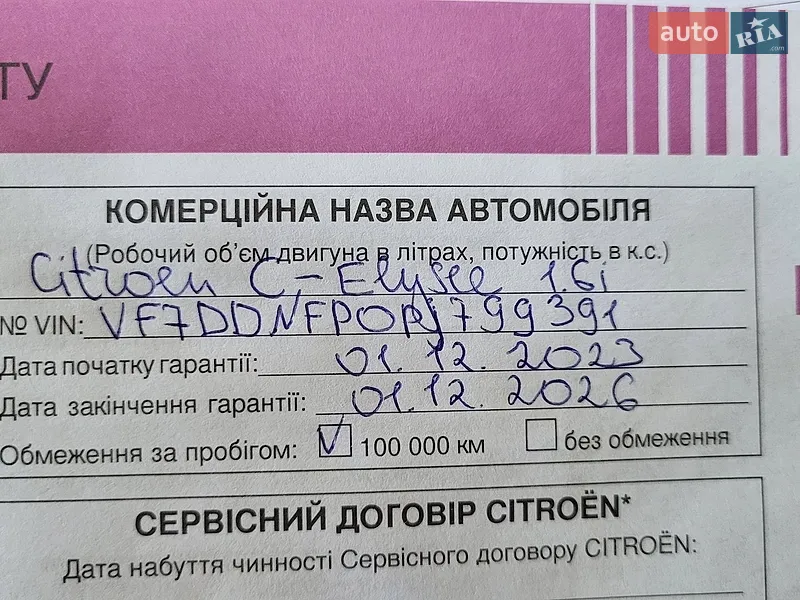 auto RIA .com
ТУ
КОМЕРЦІЙНА НАЗВА АВТОМОБІЛЯ
(Робочий об'єм двигуна в літрах, потужність в к.с.)
Citroen C-Elysee 1.6i
№ VIN: VF7DDNFPOPJ799391
Дата початку гарантії: 01.12.2023
Дата закінчення гарантії: 01.12.2026
Обмеження за пробігом: 100 000 км без обмеження
СЕРВІСНИЙ ДОГОВІР CITROËN*
Дата набуття чинності Сервісного договору CITROËN: